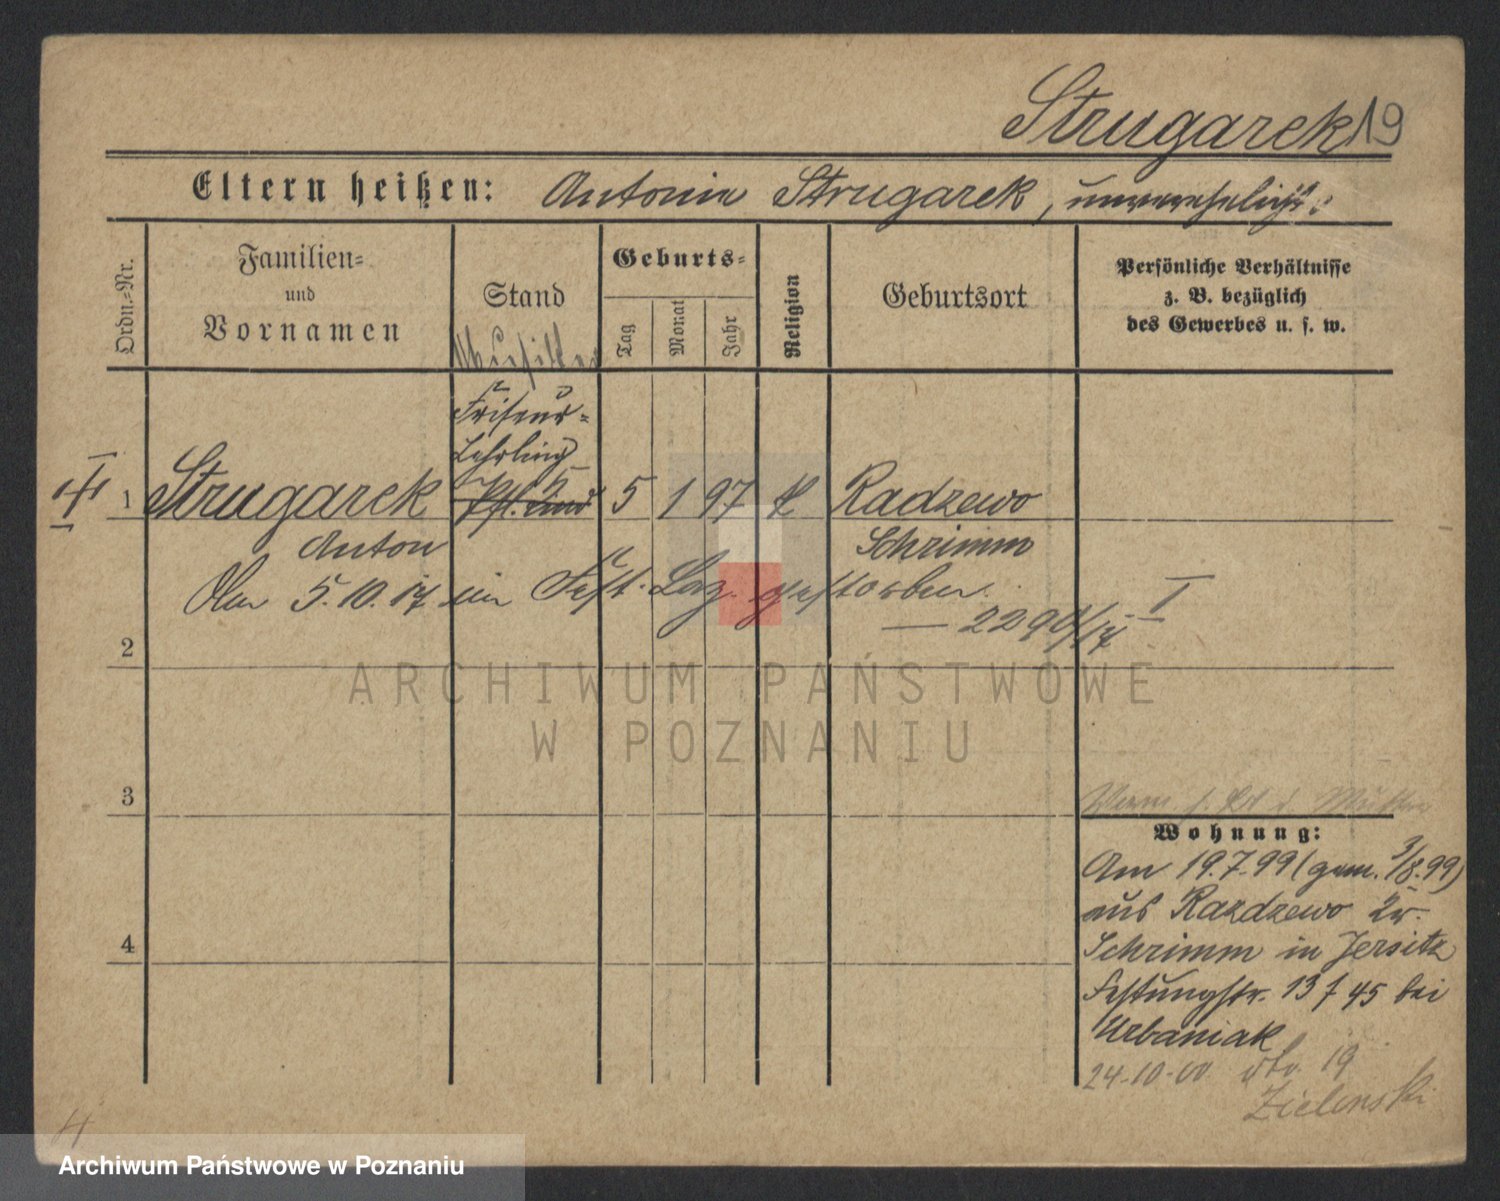 Strugarek 19
Eltern heißen: Antonie Strugarek, unverehelicht.
Ordn.=Nr.
Familien=
und
Vornamen
Stand
Geburts=
Tag
Monat
Jahr
Religion
Geburtsort
Persönliche Verhältnisse
z. B. bezüglich
des Gewerbes u. s. w.
Friseur-
Lehrling
1 Strugarek 5 1 97 K Radzewo
Anton Schrimm
Am 5.10.17 im Fest. Laz. gestorben.
I
2
ARCHIWUM PAŃSTWOWE
W POZNANIU
3
Wohnung:
Am 19.7.99 (gem. 3/8.99)
aus Razdzewo Kr.
Schrimm in Jersitz
Festungstr. 13 f 45 bei
Urbaniak
24-10-00 19
Zielinski
4
Archiwum Państwowe w Poznaniu